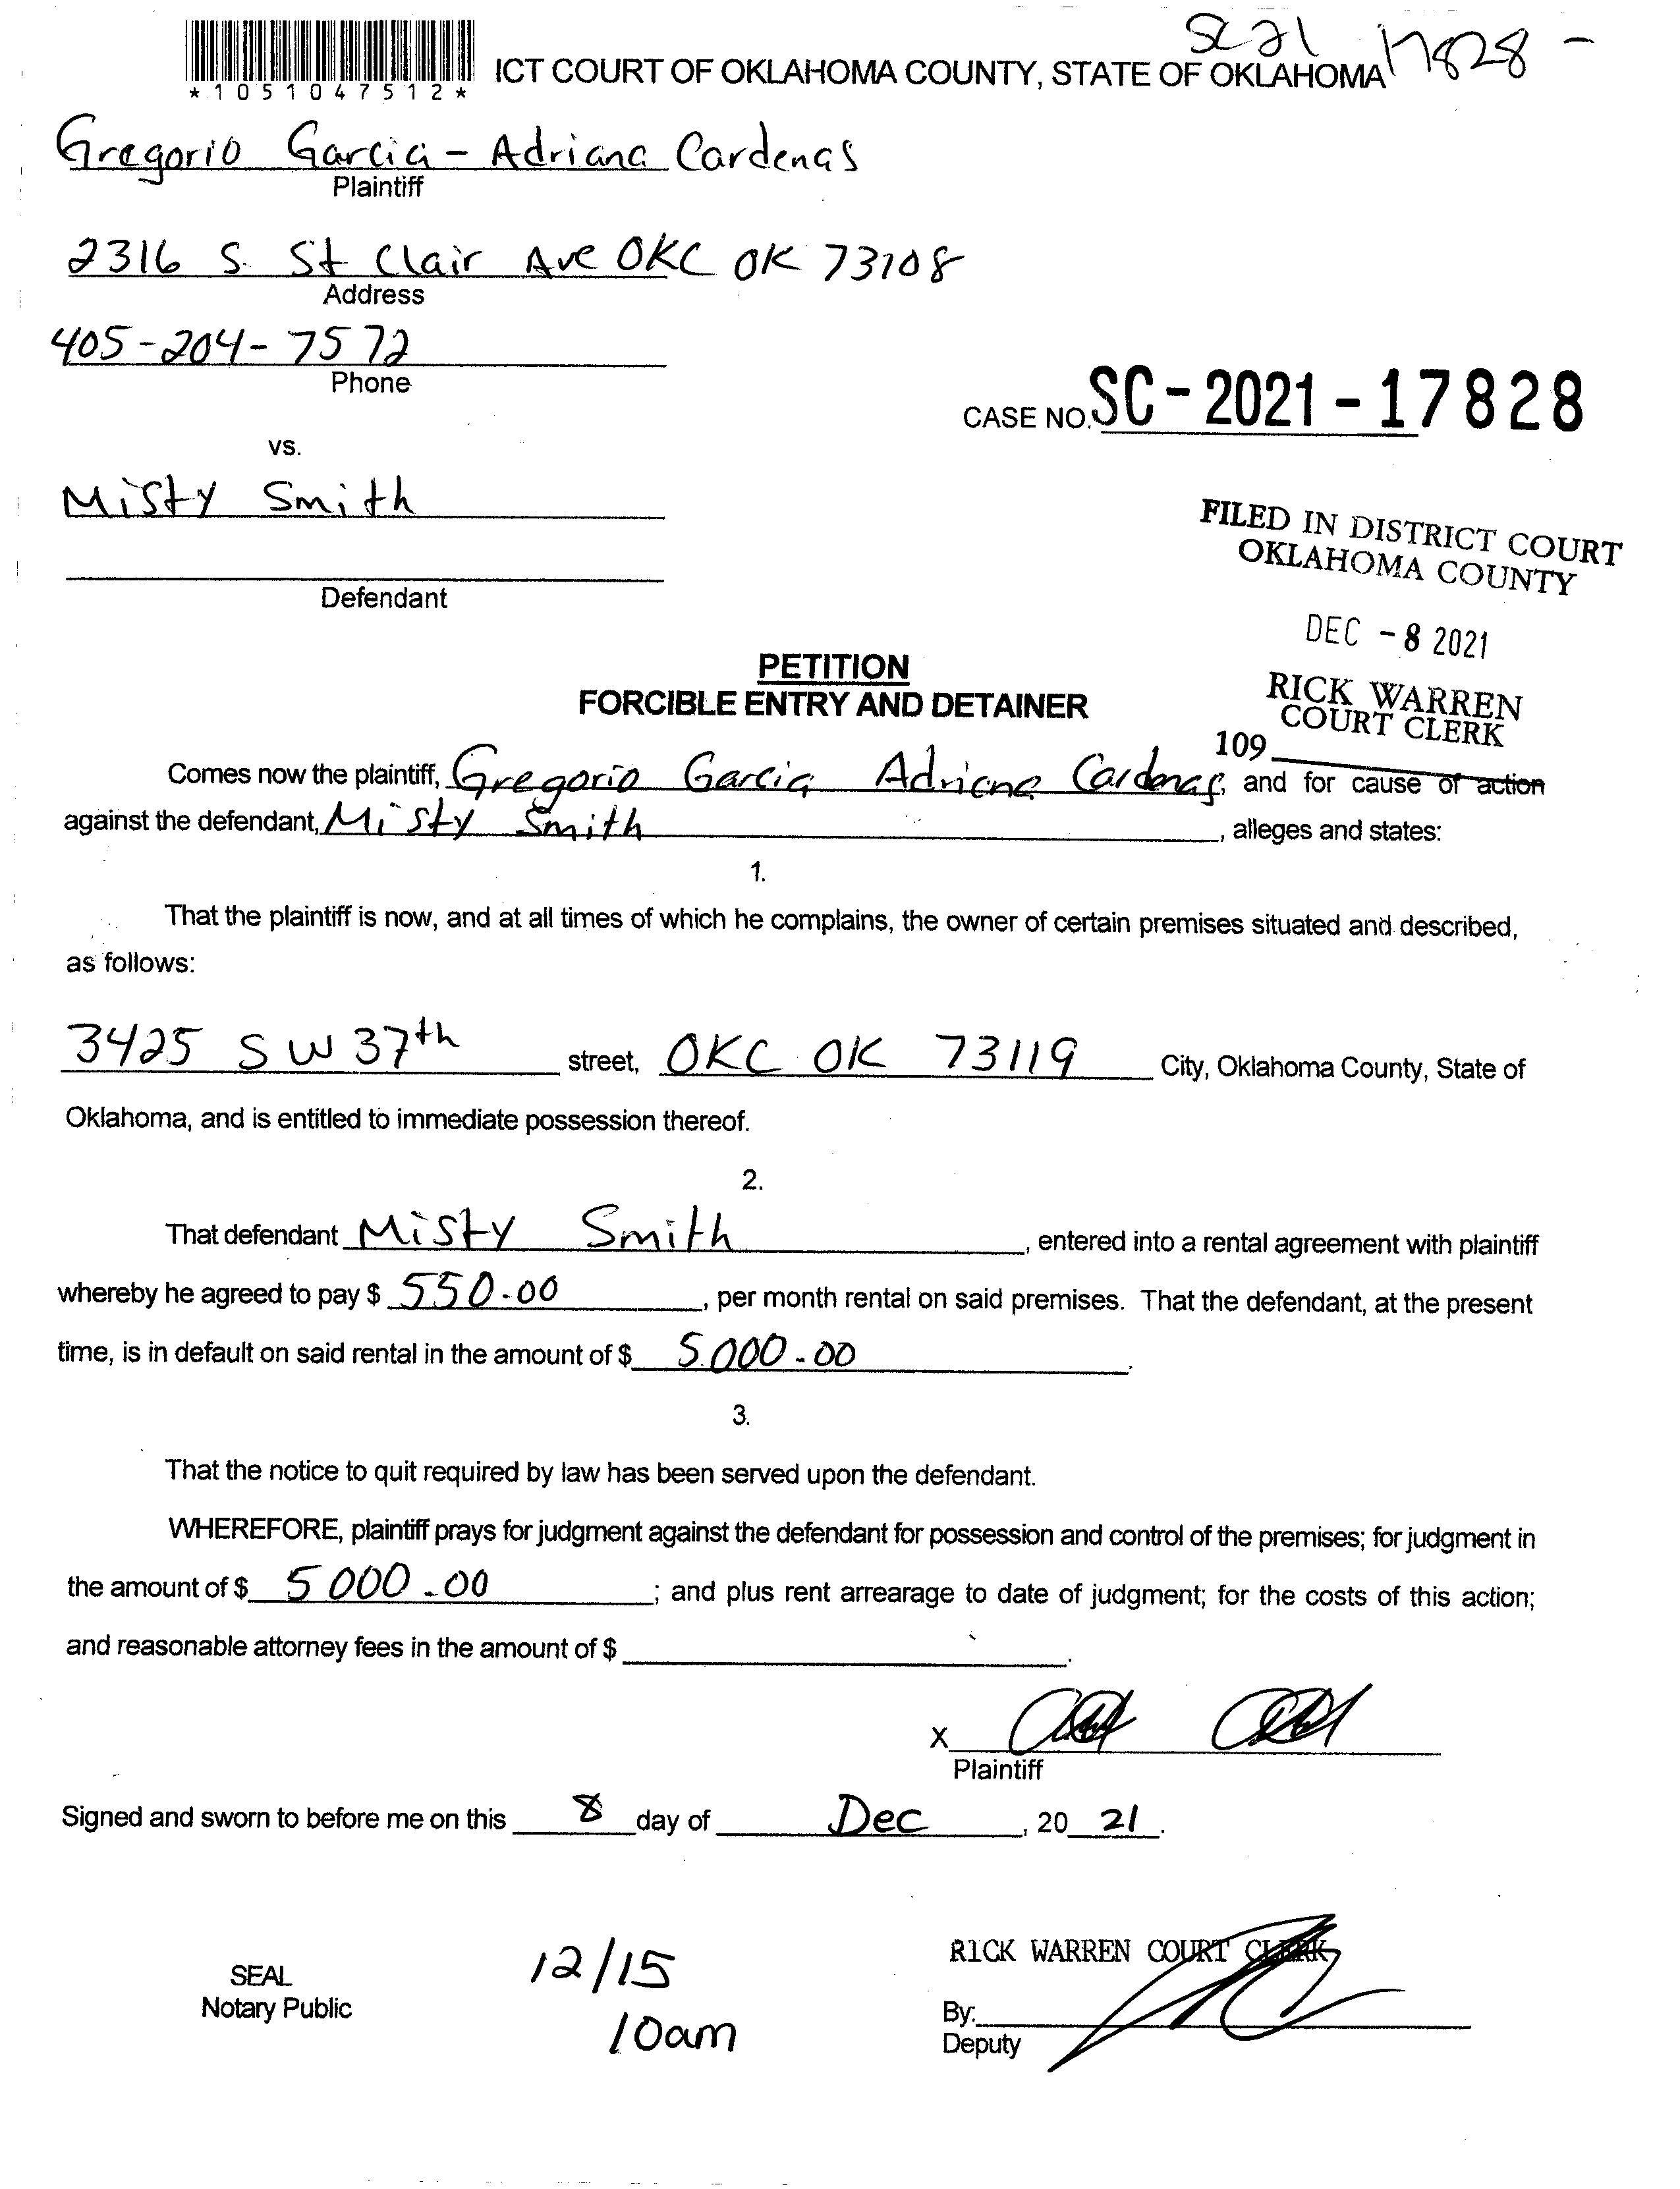 SC 21 17828 -
*1051047512*
ICT COURT OF OKLAHOMA COUNTY, STATE OF OKLAHOMA
Gregorio Garcia - Adriana Cardenas
Plaintiff
2316 S. St Clair Ave OKC OK 73108
Address
405-204-7572
Phone
CASE NO. SC-2021-17828
vs.
Misty Smith
FILED IN DISTRICT COURT
OKLAHOMA COUNTY
Defendant
DEC -8 2021
PETITION
FORCIBLE ENTRY AND DETAINER
RICK WARREN
COURT CLERK
109
Comes now the plaintiff, Gregorio Garcia Adriana Cardenas, and for cause of action
against the defendant, Misty Smith, alleges and states:
1.
That the plaintiff is now, and at all times of which he complains, the owner of certain premises situated and described,
as follows:
3425 SW 37th street, OKC OK 73119 City, Oklahoma County, State of
Oklahoma, and is entitled to immediate possession thereof.
2.
That defendant Misty Smith, entered into a rental agreement with plaintiff
whereby he agreed to pay $ 550.00, per month rental on said premises. That the defendant, at the present
time, is in default on said rental in the amount of $ 5.000.00.
3.
That the notice to quit required by law has been served upon the defendant.
WHEREFORE, plaintiff prays for judgment against the defendant for possession and control of the premises; for judgment in
the amount of $ 5000.00; and plus rent arrearage to date of judgment; for the costs of this action;
and reasonable attorney fees in the amount of $.
X
Plaintiff
Signed and sworn to before me on this 8 day of Dec, 20 21.
RICK WARREN COURT CLERK
SEAL
Notary Public
12/15
10am
By:
Deputy